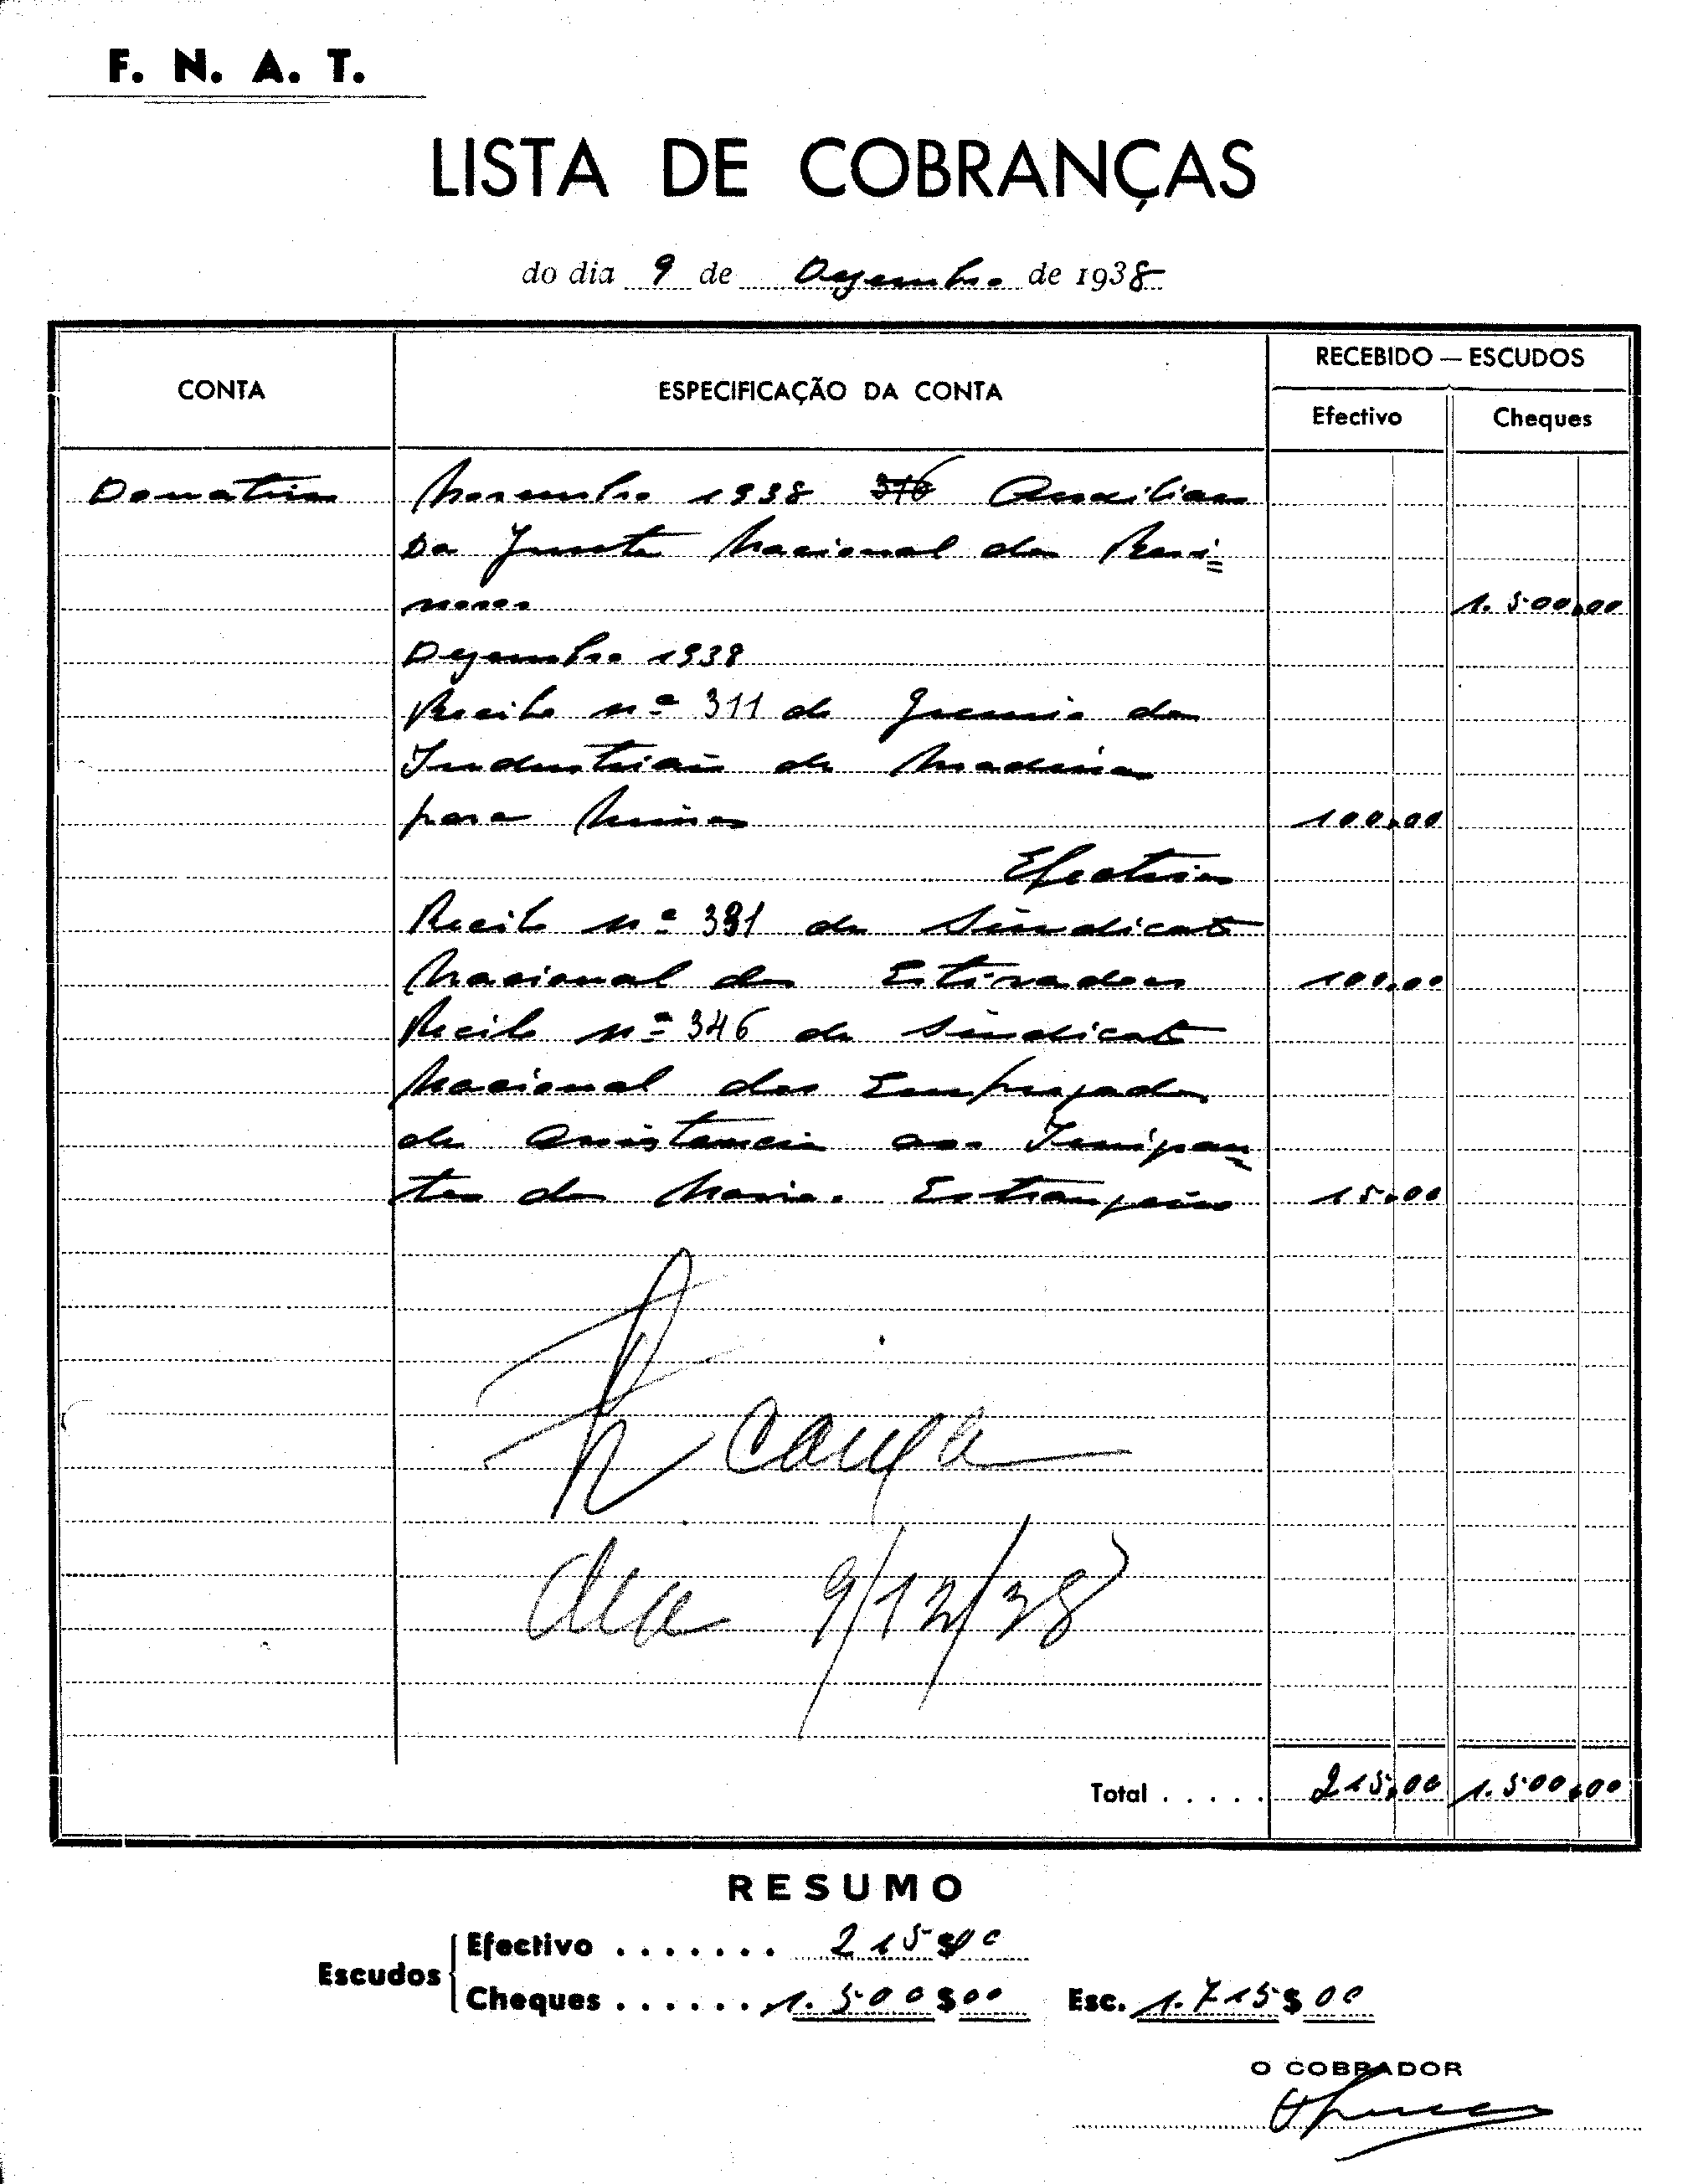 F. N. A. T.
LISTA DE COBRANÇAS
do dia 9 de Dezembro de 1938
CONTA
ESPECIFICAÇÃO DA CONTA
RECEBIDO — ESCUDOS
Efectivo
Cheques
Donativos Novembro 1938 316 Auxiliares
Da Junta Nacional dos Resi=
nosos 1.500,00
Dezembro 1938
Recibo nº 311 do Gremio dos
Industriais de Madeiras
para Minas 100,00
Efectivos
Recibo nº 381 do Sindicato
Nacional dos Estivadores 100,00
Recibo nº 346 do Sindicato
Nacional dos Empregados
de Assistencia aos Tripulan=
tes dos Navios Estrangeiros 15,00
caixa
dia 9/12/38
Total . . . . . 215,00 1.500,00
RESUMO
Escudos
Efectivo . . . . . . . 215$00
Cheques . . . . . . 1.500$00 Esc. 1.715$00
O COBRADOR